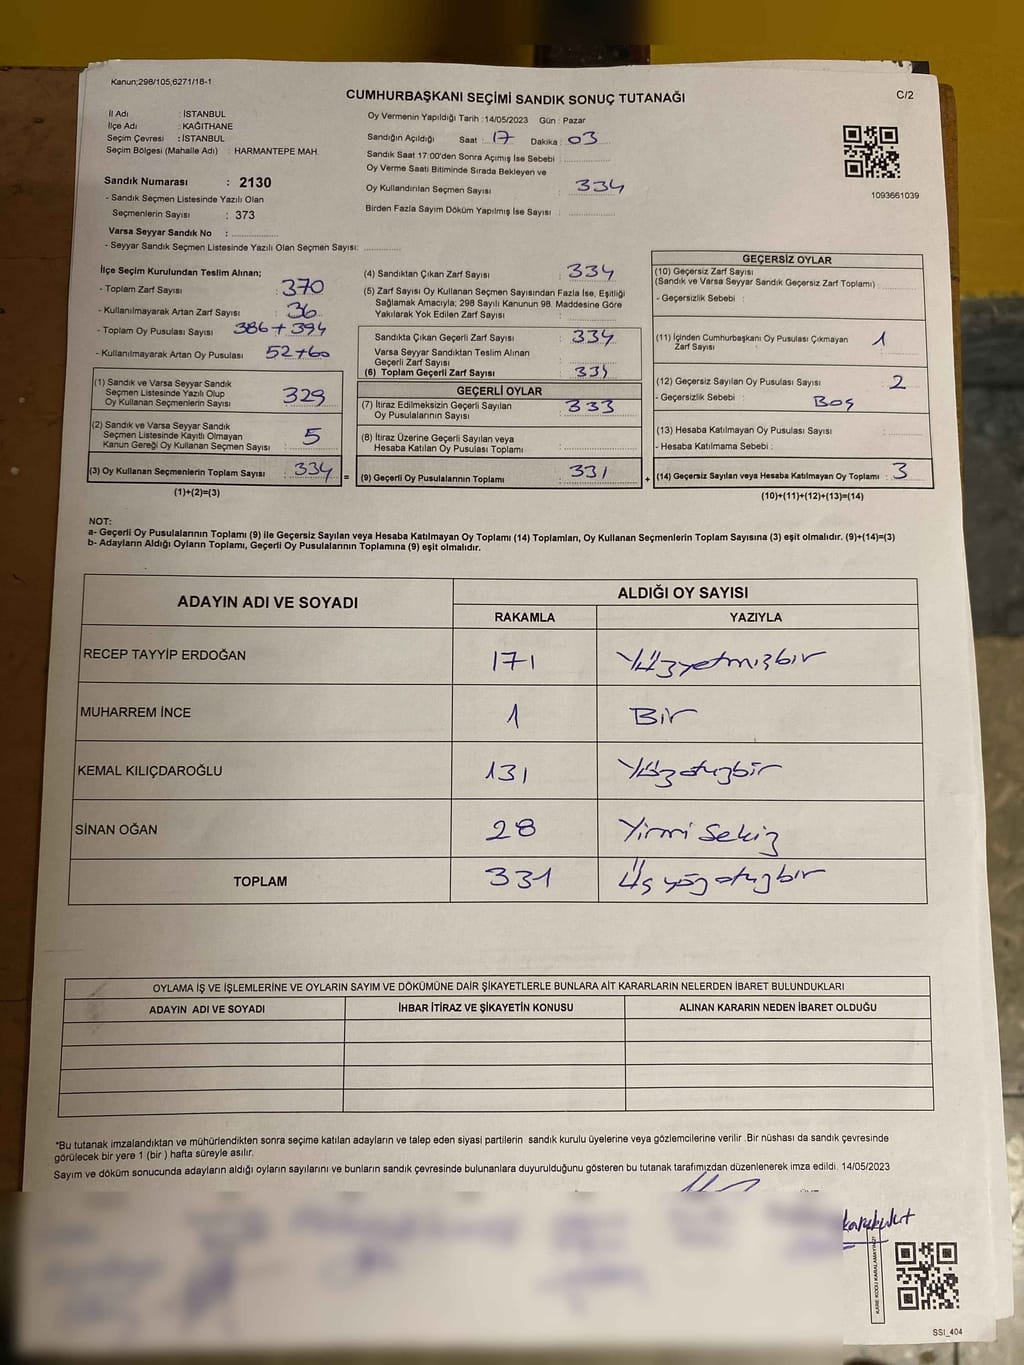 Kanun;298/105,6271/18-1
CUMHURBAŞKANI SEÇİMİ SANDIK SONUÇ TUTANAĞI
C/2
İl Adı : İSTANBUL
İlçe Adı : KAĞITHANE
Seçim Çevresi : İSTANBUL
Seçim Bölgesi (Mahalle Adı) : HARMANTEPE MAH.
Sandık Numarası : 2130
- Sandık Seçmen Listesinde Yazılı Olan
Seçmenlerin Sayısı : 373
Varsa Seyyar Sandık No :
- Seyyar Sandık Seçmen Listesinde Yazılı Olan Seçmen Sayısı:
Oy Vermenin Yapıldığı Tarih :14/05/2023 Gün : Pazar
Sandığın Açıldığı Saat : 17 Dakika : 03
Sandık Saat 17:00'den Sonra Açımış İse Sebebi :
Oy Verme Saati Bitiminde Sırada Bekleyen ve
Oy Kullandırılan Seçmen Sayısı : 334
Birden Fazla Sayım Döküm Yapılmış İse Sayısı :
1093661039
İlçe Seçim Kurulundan Teslim Alınan;
- Toplam Zarf Sayısı : 370
- Kullanılmayarak Artan Zarf Sayısı : 36
- Toplam Oy Pusulası Sayısı : 386+394
- Kullanılmayarak Artan Oy Pusulası 52+60
(1) Sandık ve Varsa Seyyar Sandık
Seçmen Listesinde Yazılı Olup
Oy Kullanan Seçmenlerin Sayısı : 329
(2) Sandık ve Varsa Seyyar Sandık
Seçmen Listesinde Kayıtlı Olmayan
Kanun Gereği Oy Kullanan Seçmen Sayısı : 5
(3) Oy Kullanan Seçmenlerin Toplam Sayısı : 334 =
(1)+(2)=(3)
(4) Sandıktan Çıkan Zarf Sayısı : 334
(5) Zarf Sayısı Oy Kullanan Seçmen Sayısından Fazla İse, Eşitliği
Sağlamak Amacıyla; 298 Sayılı Kanunun 98. Maddesine Göre
Yakılarak Yok Edilen Zarf Sayısı :
Sandıkta Çıkan Geçerli Zarf Sayısı : 334
Varsa Seyyar Sandıktan Teslim Alınan
Geçerli Zarf Sayısı :
(6) Toplam Geçerli Zarf Sayısı : 334
GEÇERLİ OYLAR
(7) İtiraz Edilmeksizin Geçerli Sayılan
Oy Pusulalarının Sayısı : 333
(8) İtiraz Üzerine Geçerli Sayılan veya
Hesaba Katılan Oy Pusulası Toplamı :
(9) Geçerli Oy Pusulalarının Toplamı : 331 +
GEÇERSİZ OYLAR
(10) Geçersiz Zarf Sayısı
(Sandık ve Varsa Seyyar Sandık Geçersiz Zarf Toplamı) :
- Geçersizlik Sebebi :
(11) İçinden Cumhurbaşkanı Oy Pusulası Çıkmayan
Zarf Sayısı : 1
(12) Geçersiz Sayılan Oy Pusulası Sayısı : 2
- Geçersizlik Sebebi : Boş
(13) Hesaba Katılmayan Oy Pusulası Sayısı :
- Hesaba Katılmama Sebebi :
(14) Geçersiz Sayılan veya Hesaba Katılmayan Oy Toplamı : 3
(10)+(11)+(12)+(13)=(14)
NOT:
a- Geçerli Oy Pusulalarının Toplamı (9) ile Geçersiz Sayılan veya Hesaba Katılmayan Oy Toplamı (14) Toplamları, Oy Kullanan Seçmenlerin Toplam Sayısına (3) eşit olmalıdır. (9)+(14)=(3)
b- Adayların Aldığı Oyların Toplamı, Geçerli Oy Pusulalarının Toplamına (9) eşit olmalıdır.
ADAYIN ADI VE SOYADI
ALDIĞI OY SAYISI
RAKAMLA YAZIYLA
RECEP TAYYİP ERDOĞAN 171 Yüzyetmişbir
MUHARREM İNCE 1 Bir
KEMAL KILIÇDAROĞLU 131 Yüzotuzbir
SİNAN OĞAN 28 Yirmi Sekiz
TOPLAM 331 Üç yüz otuzbir
OYLAMA İŞ VE İŞLEMLERİNE VE OYLARIN SAYIM VE DÖKÜMÜNE DAİR ŞİKAYETLERLE BUNLARA AİT KARARLARIN NELERDEN İBARET BULUNDUKLARI
ADAYIN ADI VE SOYADI İHBAR İTİRAZ VE ŞİKAYETİN KONUSU ALINAN KARARIN NEDEN İBARET OLDUĞU
*Bu tutanak imzalandıktan ve mühürlendikten sonra seçime katılan adayların ve talep eden siyasi partilerin sandık kurulu üyelerine veya gözlemcilerine verilir .Bir nüshası da sandık çevresinde
görülecek bir yere 1 (bir ) hafta süreyle asılır.
Sayım ve döküm sonucunda adayların aldığı oyların sayılarını ve bunların sandık çevresinde bulunanlara duyurulduğunu gösteren bu tutanak tarafımızdan düzenlenerek imza edildi. 14/05/2023
KARE KODU KARALAMAYINIZ!
SSI_404